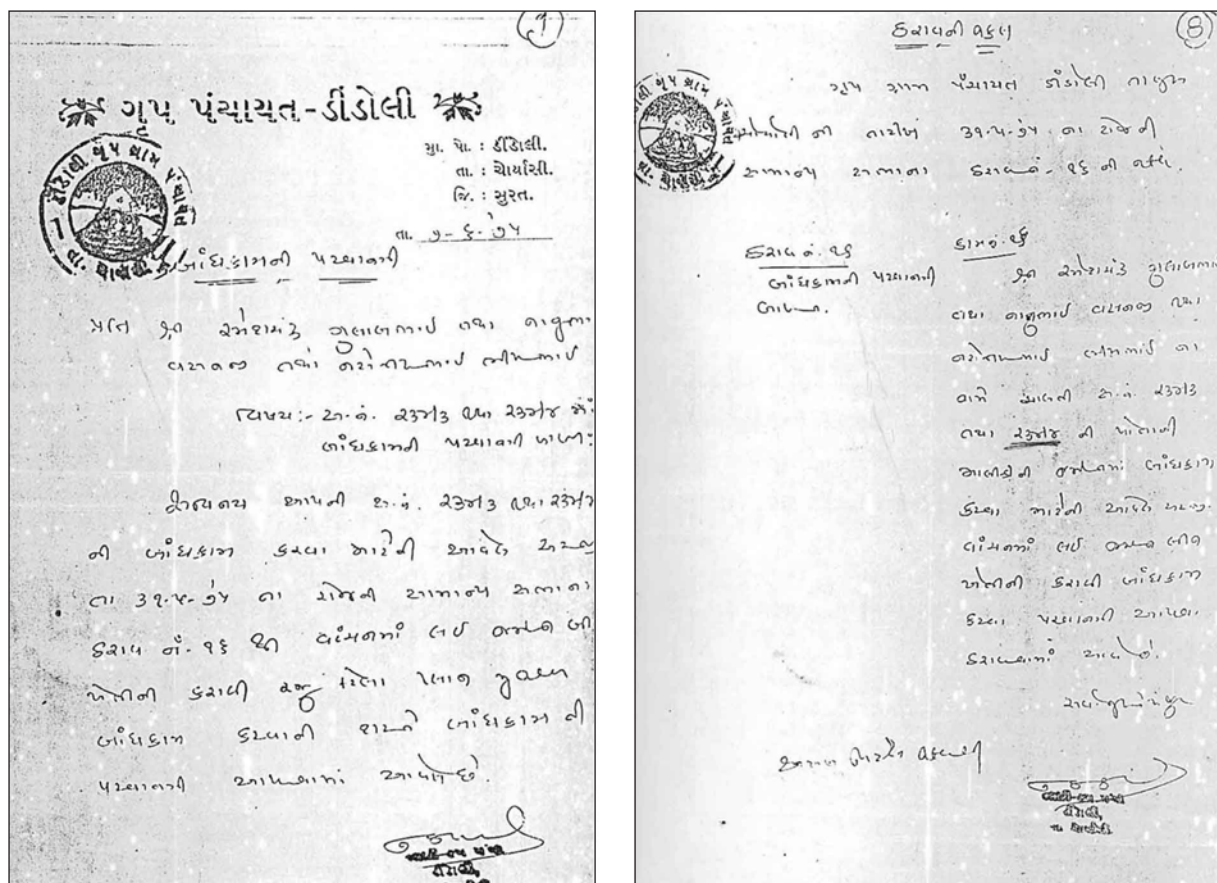 ૧
ગ્રુપ પંચાયત-ડીંડોલી
મુ. પો. : ડીંડોલી.
તા. : ચોર્યાસી.
જિ. : સુરત.
તા. ૭-૬-૭૫
બાંધકામની પરવાનગી
પ્રતિ શ્રી રમેશચંદ્ર ગુલાબભાઈ તથા
તથા નરોત્તમભાઈ ભીમભાઈ
વિષય:- સ.નં. ૨૩૭/૩ તથા ૨૩૭/૪
બાંધકામની પરવાનગી
આપની સ.નં. ૨૩૭/૩ તથા ૨૩૭/૪
ની બાંધકામ કરવા માટેની આવેલ અરજી
તા ૩૧-૫-૭૫ ના રોજની સામાન્ય સભાના
ઠરાવ નં. ૧૬ થી વાંચનમાં લઈ જમીન બીન
ખેતીની કરાવી રજુ કરેલા પ્લાન મુજબ
બાંધકામ કરવાની શરતે બાંધકામ ની
પરવાનગી આપવામાં આવેલ છે.
ડીંડોલી,
ઠરાવની નકલ
8
ગ્રુપ ગ્રામ પંચાયત ડીંડોલી તાલુકા
ચોર્યાસી ની તારીખ ૩૧-૫-૭૫ ના રોજની
સામાન્ય સભાના ઠરાવ નં. ૧૬ ની નકલ.
ઠરાવ નં. ૧૬
કામ નં. ૧૬
બાંધકામની પરવાનગી
બાબત.
શ્રી રમેશચંદ્ર ગુલાબભાઈ
તથા વસનજી તથા
નરોત્તમભાઈ ભીમભાઈ ના
નામે ચાલતી સ.નં. ૨૩૭/૩
તથા ૨૩૭/૪ ની પોતાની
માલીકીની જમીનમાં બાંધકામ
કરવા માટેની આવેલ અરજી
વાંચનમાં લઈ જમીન બીન
ખેતીની કરાવી બાંધકામ
કરવા પરવાનગી આપવા
ઠરાવવામાં આવે છે.
સર્વાનુમતે મંજુર
ખરી નકલ
ડીંડોલી,